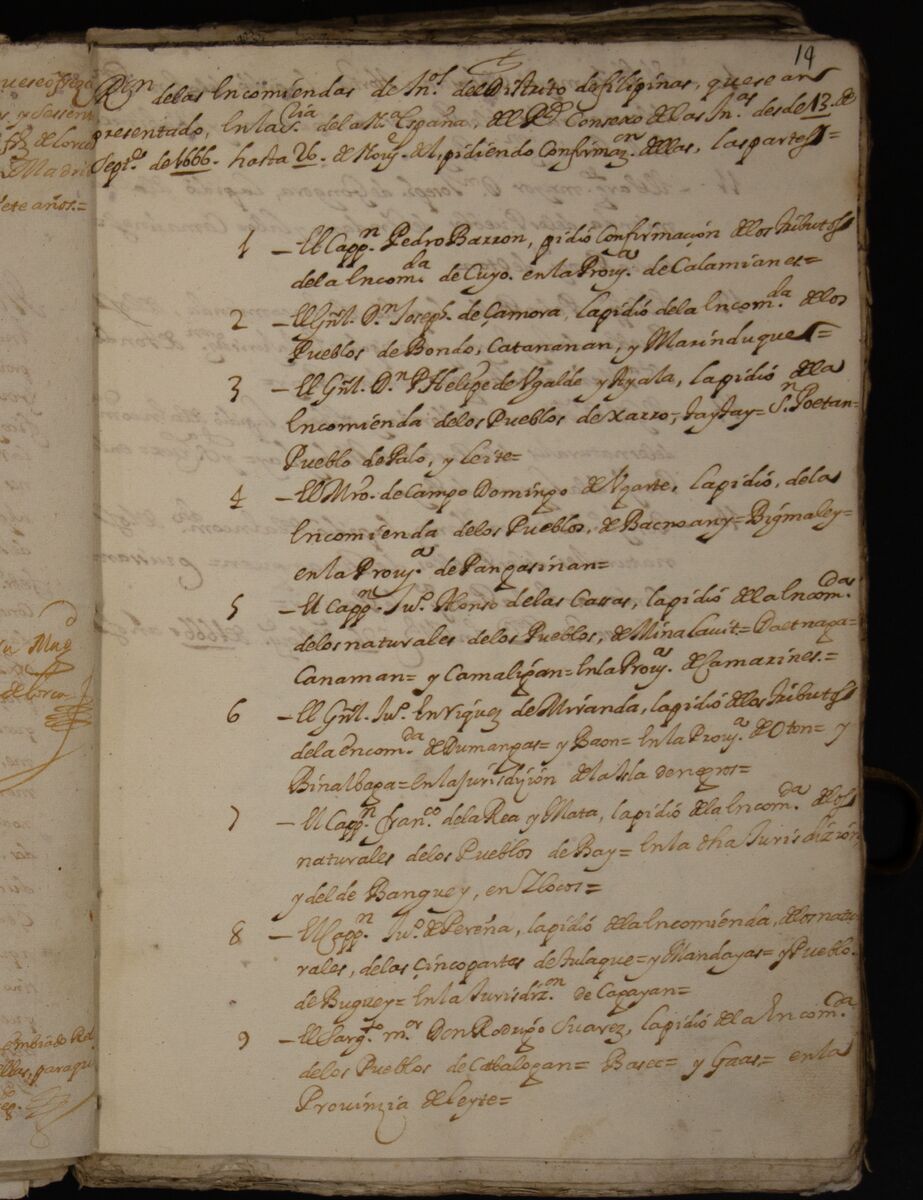 14
Rⁿ delas Encomiendas de Inᵒˢ del Distrito de filipinas, que se an
presentado, En la Sʳⁱᵃ de la Nᵃ España, del Rˡ Consexo de las Inᵃˢ desde 13 de
Septᵉ de 1666. hasta 26. de Nouᵉ. pidiendo Confirmazᵒⁿ dellas, las partes=
1 – El Cappⁿ. Pedro Barron, pidió Confirmación de los tributos
de la Encomᵈᵃ de Cuyo. en la Prouᵃ de Calamianes=
2 – El Gñl. Dⁿ Joseph. de Çamora, la pidió de la Encomᵈᵃ de los
Pueblos de Bondo, Catananan, y Marinduque=
3 – El Gñl. Dⁿ Phelipe de Vgalde y Ayala, la pidió de la
Encomienda de los Pueblos de xarro, Jayjay= Sⁿ. Poetan=
Pueblo de Palo, y Leite=
4 – El Mrᵒ. de Campo Domingo de Vgarte, la pidió, de la
Encomienda de los Pueblos, de Bacnoany= Bigmaley=
en la Prouᵃ de Pangasinan=
5 – El Cappⁿ. Juᵒ. Alonso de las Cassas, la pidió de la Encomᵈᵃ
de los naturales de los Pueblos, de Minalauit= Daetnaga=
Canaman= y Camaligan= En la Prouᵃ de Camarines.=
6 – El Gñl. Juᵒ. Enriquez de Miranda, la pidió de los tributos
de la encomᵈᵃ de Dumangas= y Baon= En la Prouᵃ de Oton= y
Binalbaga= En la Jurisdición de la Isla de negros=
7 – El Cappⁿ franᶜᵒ de la Rea y Mata, la pidió de la Encomᵈᵃ de los
naturales de los Pueblos de Bay= En la dha Jurisdizión
y del de Banguey, en Ilocos=
8 – El Cappⁿ Juᵒ. de Pereña, la pidió de la Encomiênda, de los natu
rales, de las çinco partes de tulaque= y Mandayas= y Pueblo
de Buguey= En la Jurisdizᵒⁿ de Cagayan=
9 – El Sargᵗᵒ mᵒʳ Don Rodrigo Suarez, la pidió de la Encomᵈᵃ
de los Pueblos de Catbalogan= Basee= y Gaas= en la
Prouinzia de Leyte=